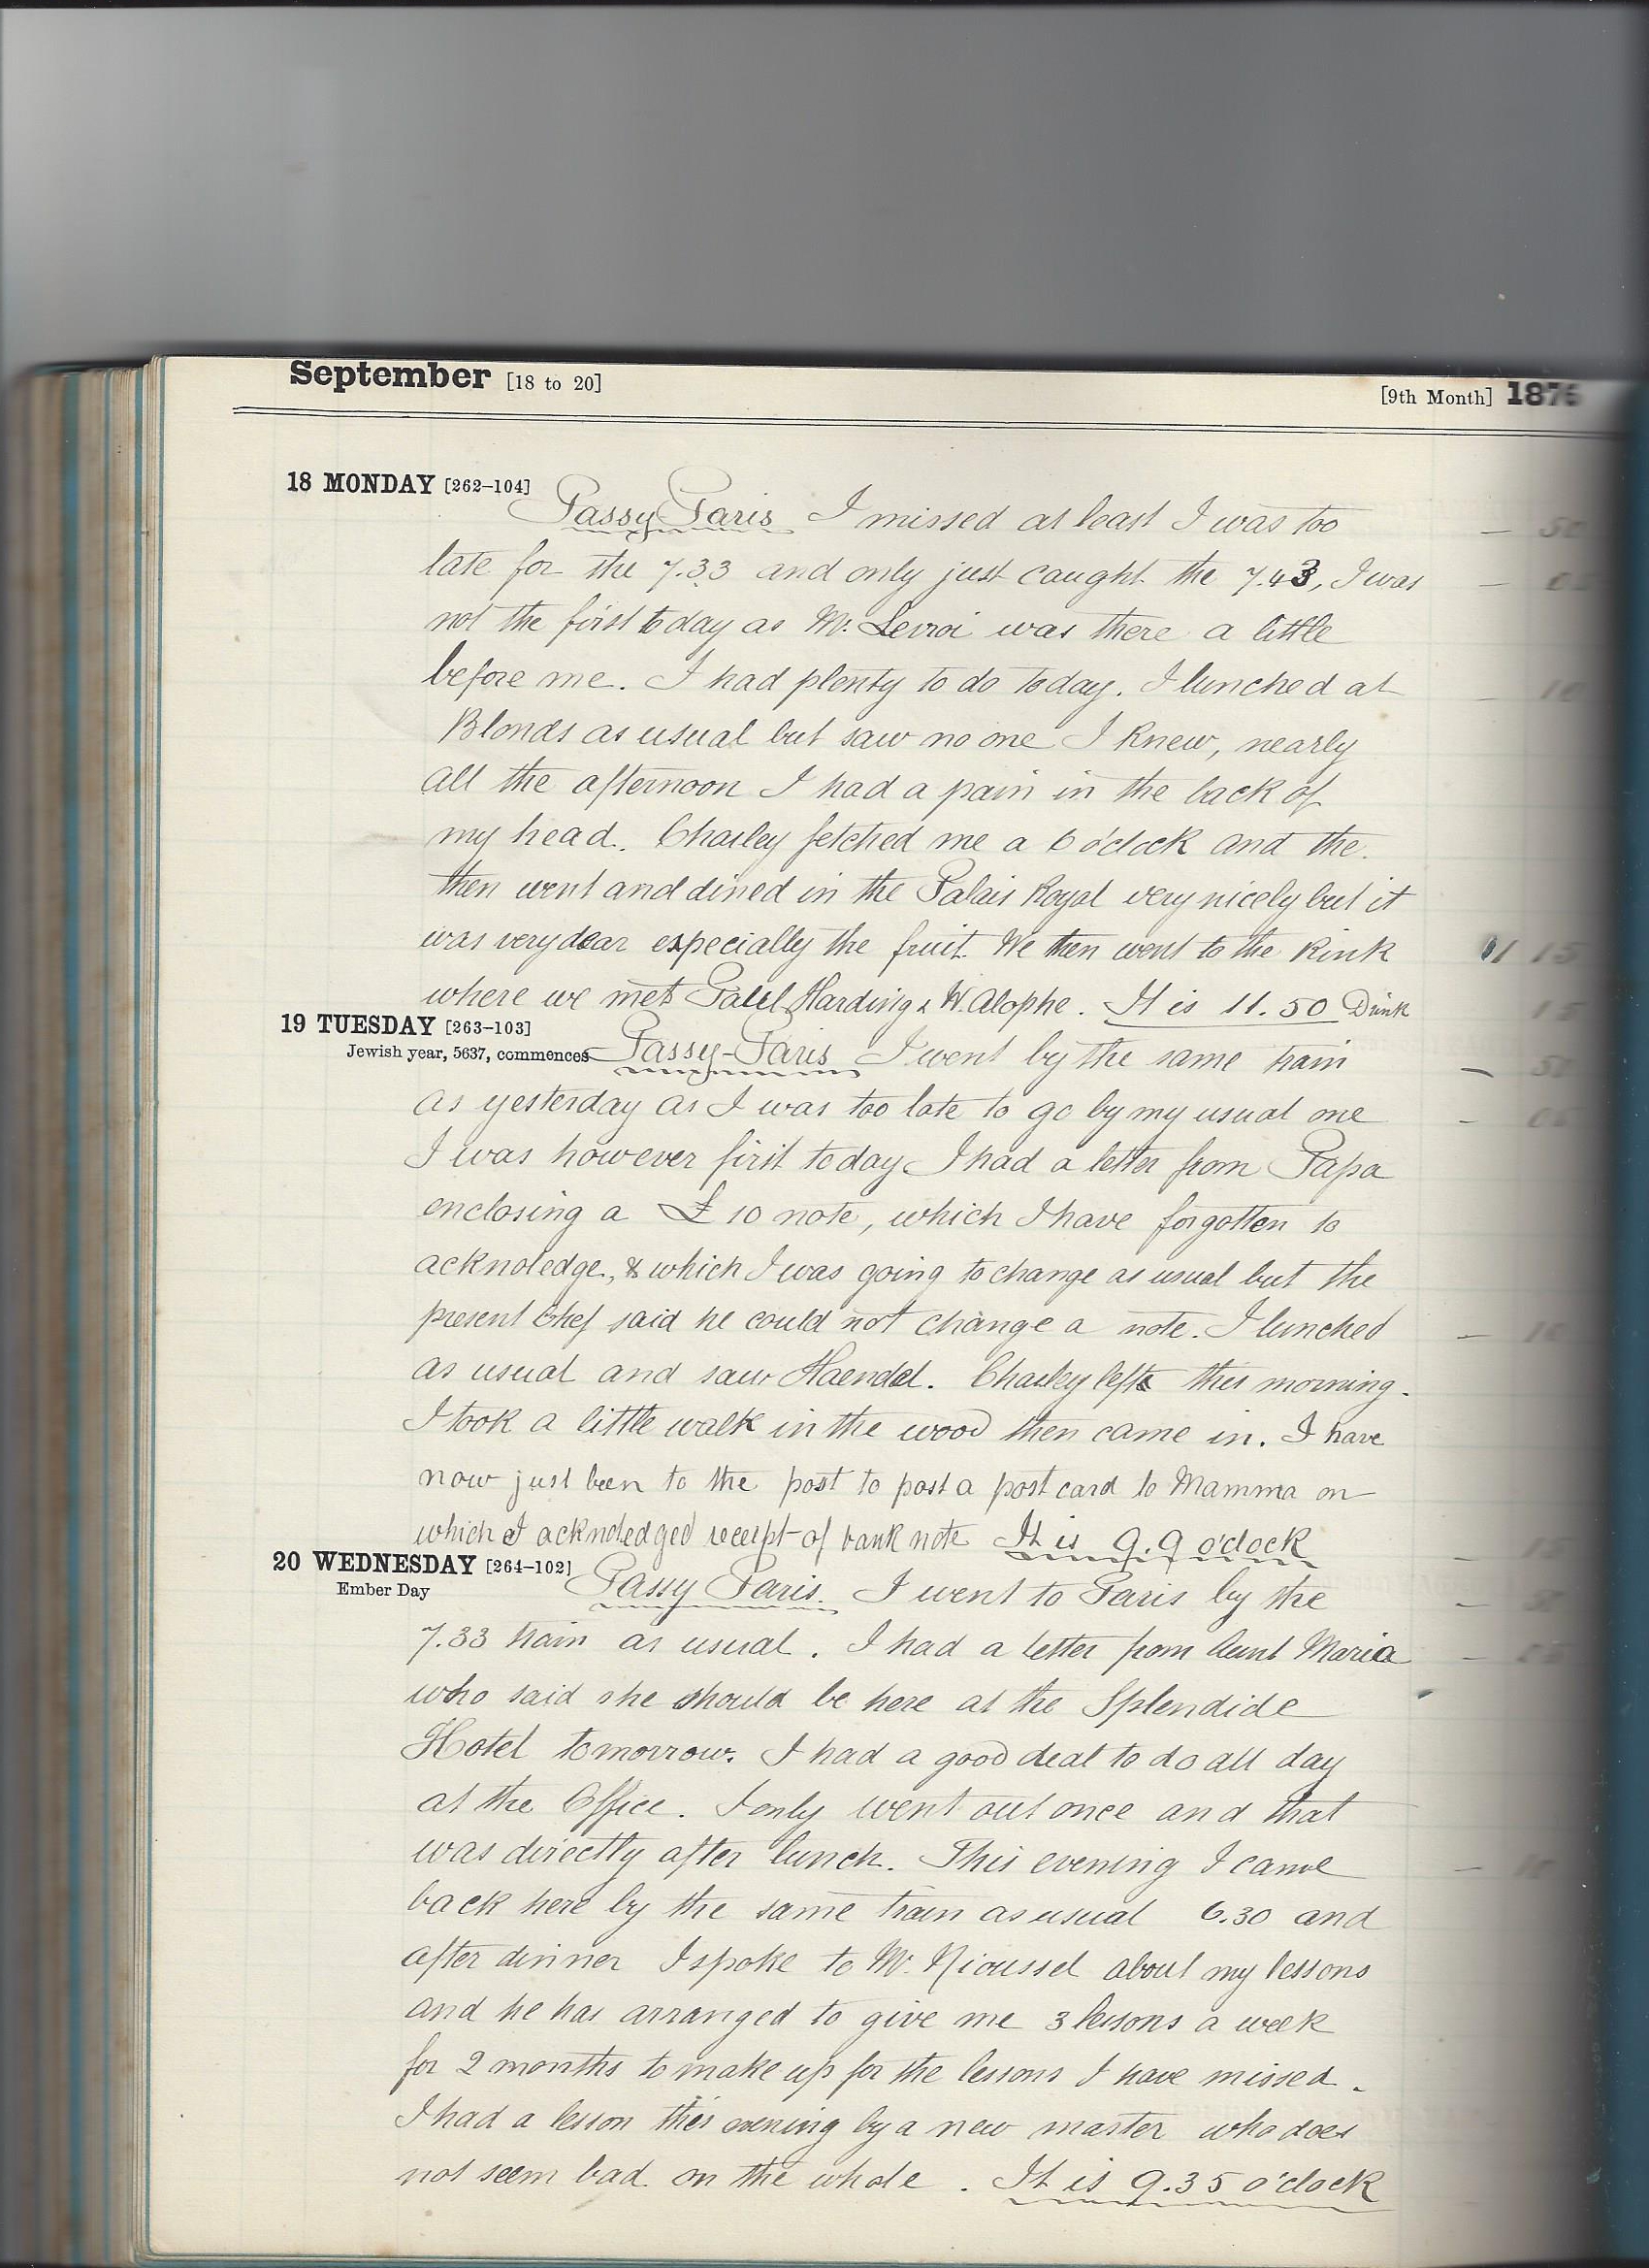 September [18 to 20] [9th Month] 1876
18 MONDAY [262–104]
Passy Paris I missed at least I was too
late for the 7.33 and only just caught the 7.43, I was
not the first today as Mr. Levioi was there a little
before me. I had plenty to do today. I lunched at
Blonds as usual but saw no one I knew, nearly
all the afternoon I had a pain in the back of
my head. Charley fetched me a 6 o'clock and the
then went and dined in the Palais Royal very nicely but it
was very dear especially the fruit. We then went to the Rink
where we met Paul Harding & W. Alophe. It is 11.50 Drink
19 TUESDAY [263–103]
Jewish year, 5637, commences
Passy-Paris I went by the same train
as yesterday as I was too late to go by my usual one
I was however first today I had a letter from Papa
enclosing a £10 note, which I have forgotten to
acknoledge, & which I was going to change as usual but the
present Chef said he could not change a note. I lunched
as usual and saw Haendel. Charley left this morning.
I took a little walk in the wood then came in. I have
now just been to the post to post a post card to Mamma on
which I acknoledged receipt of bank note It is 9.9 o'clock
20 WEDNESDAY [264–102]
Ember Day
Passy Paris. I went to Paris by the
7.33 train as usual. I had a letter from Aunt Maria
who said she should be here at the Splendide
Hotel tomorrow. I had a good deal to do all day
at the Office. I only went out once and that
was directly after lunch. This evening I came
back here by the same train as usual 6.30 and
after dinner I spoke to Mr. Rioussel about my lessons
and he has arranged to give me 3 lessons a week
for 2 months to make up for the lessons I have missed.
I had a lesson this evening by a new master who does
not seem bad on the whole. It is 9.35 o'clock